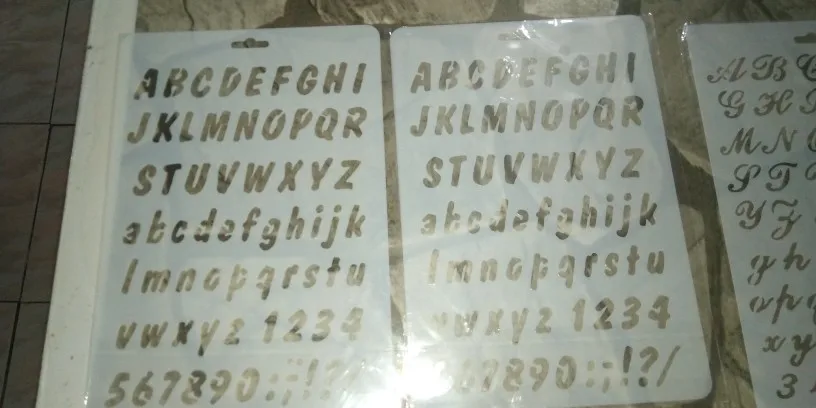 ABCDEFGHI
JKLMNOPQR
STUVWXYZ
abcdefghijk
lmnopqrstu
vwxyz 1234
567890:;!?/
ABCDEFGHI
JKLMNOPQR
STUVWXYZ
abcdefghijk
lmnopqrstu
vwxyz 1234
567890:;!?/
AB
GH
MN
ST
YZ
gh
op
xy
3